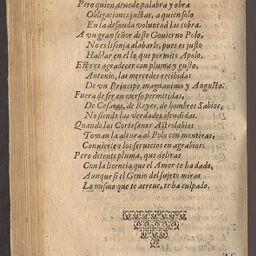 Pero quien deuo de palabra y obra
Obligaciones justas, a quien solo
En la desnuda voluntad las cobra.
A vn gran señor deste Gouierno Polo,
No es lisonja alabarle, pues es justo
Hablar en el lo que permite Apolo.
Esto es agradecer con pluma y gusto,
Antonio, las mercedes recibidas
De vn Principe magnanimo y Augusto.
Fuera de ser en verso permitidas,
De Cesares, de Reyes, de hombres Sabios,
No siendo las verdades ofendidas.
Quando los Cortesanos Astrolabios
Toman la altura al Polo con mentiras,
Conuierten los seruicios en agrabios.
Pero detente pluma, que deliras
Con la licencia que el Amor te ha dado,
Aunque si el Genio del sujeto miras
Lo mismo que te atreue, te ha culpado.